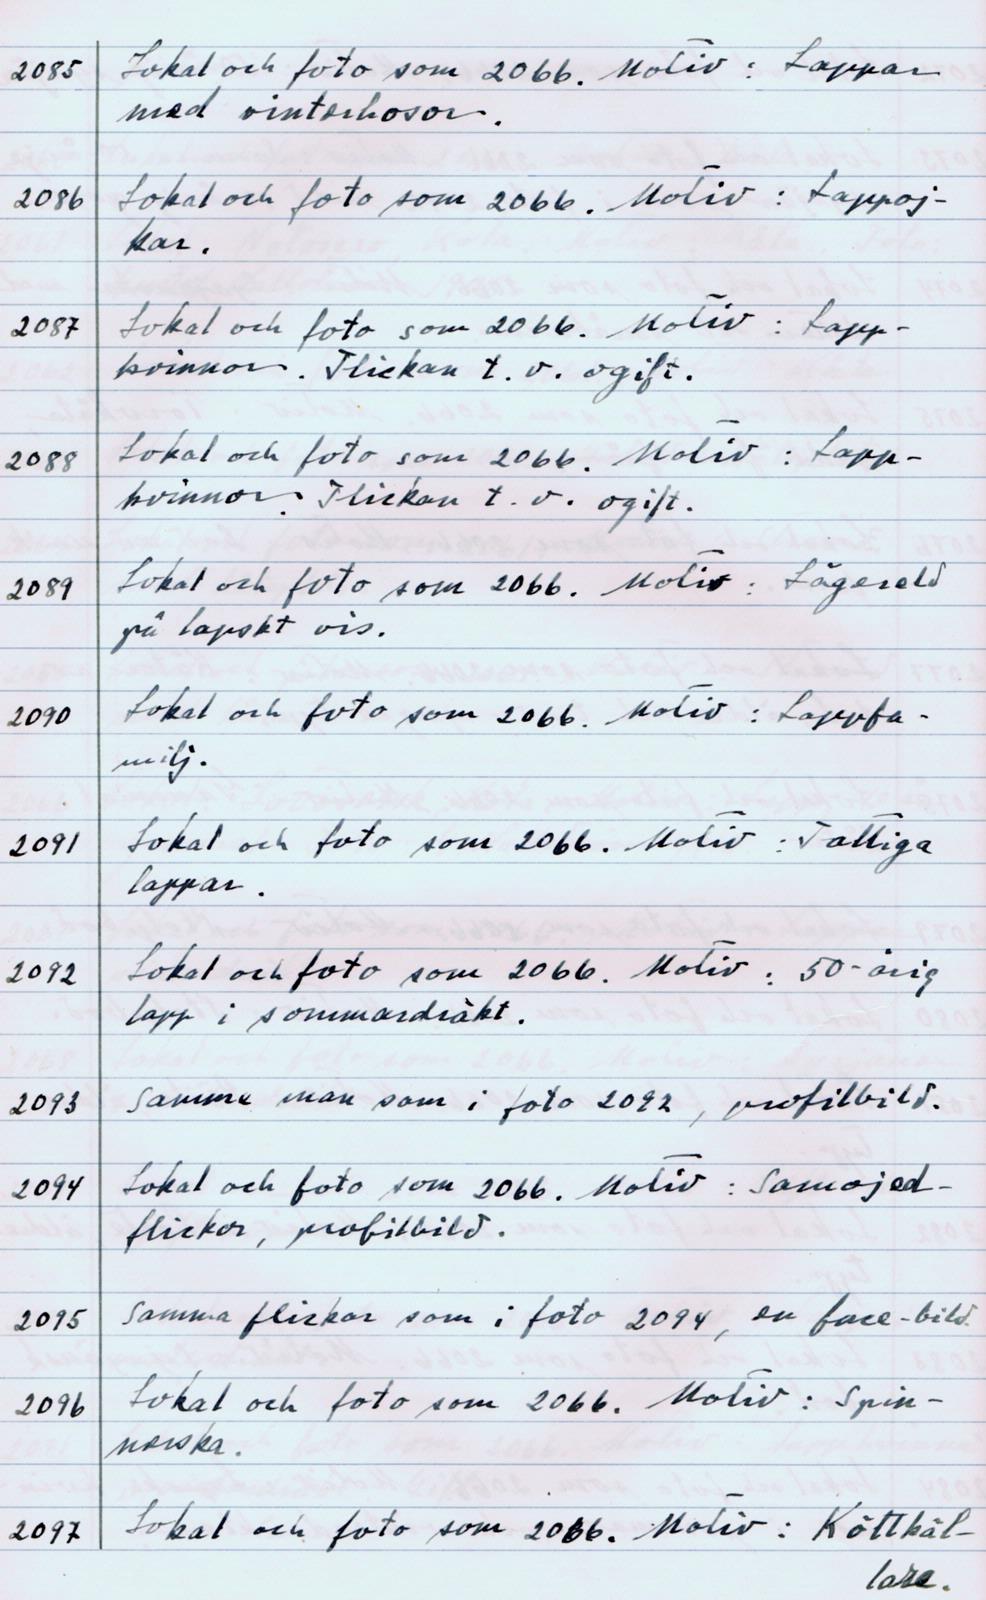 2085 Lokal och foto som 2066. Motiv : Lappar
med vinterhosor.
2086 Lokal och foto som 2066. Motiv : Lappoj-
kar.
2087 Lokal och foto som 2066. Motiv : Lapp-
kvinnor. Flickan t. v. ogift.
2088 Lokal och foto som 2066. Motiv : Lapp-
kvinnor. Flickan t. v. ogift.
2089 Lokal och foto som 2066. Motiv : Lägereld
på lapskt vis.
2090 Lokal och foto som 2066. Motiv : Lappfa-
milj.
2091 Lokal och foto som 2066. Motiv : Fattiga
lappar.
2092 Lokal och foto som 2066. Motiv : 50-årig
lapp i sommardräkt.
2093 Samma man som i foto 2092, profilbild.
2094 Lokal och foto som 2066. Motiv : Samojed-
flickor, profilbild.
2095 Samma flickor som i foto 2094, en face-bild.
2096 Lokal och foto som 2066. Motiv : Spin-
nerska.
2097 Lokal och foto som 2066. Motiv : Köttkäl-
lare.